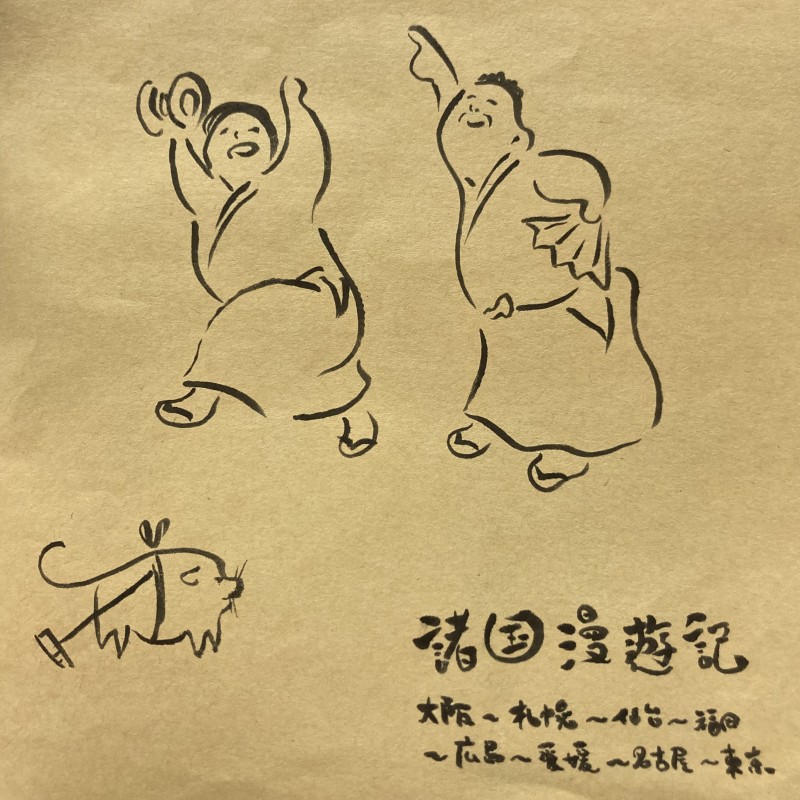 諸国漫遊記
大阪〜札幌〜仙台〜福岡
〜広島〜愛媛〜名古屋〜東京